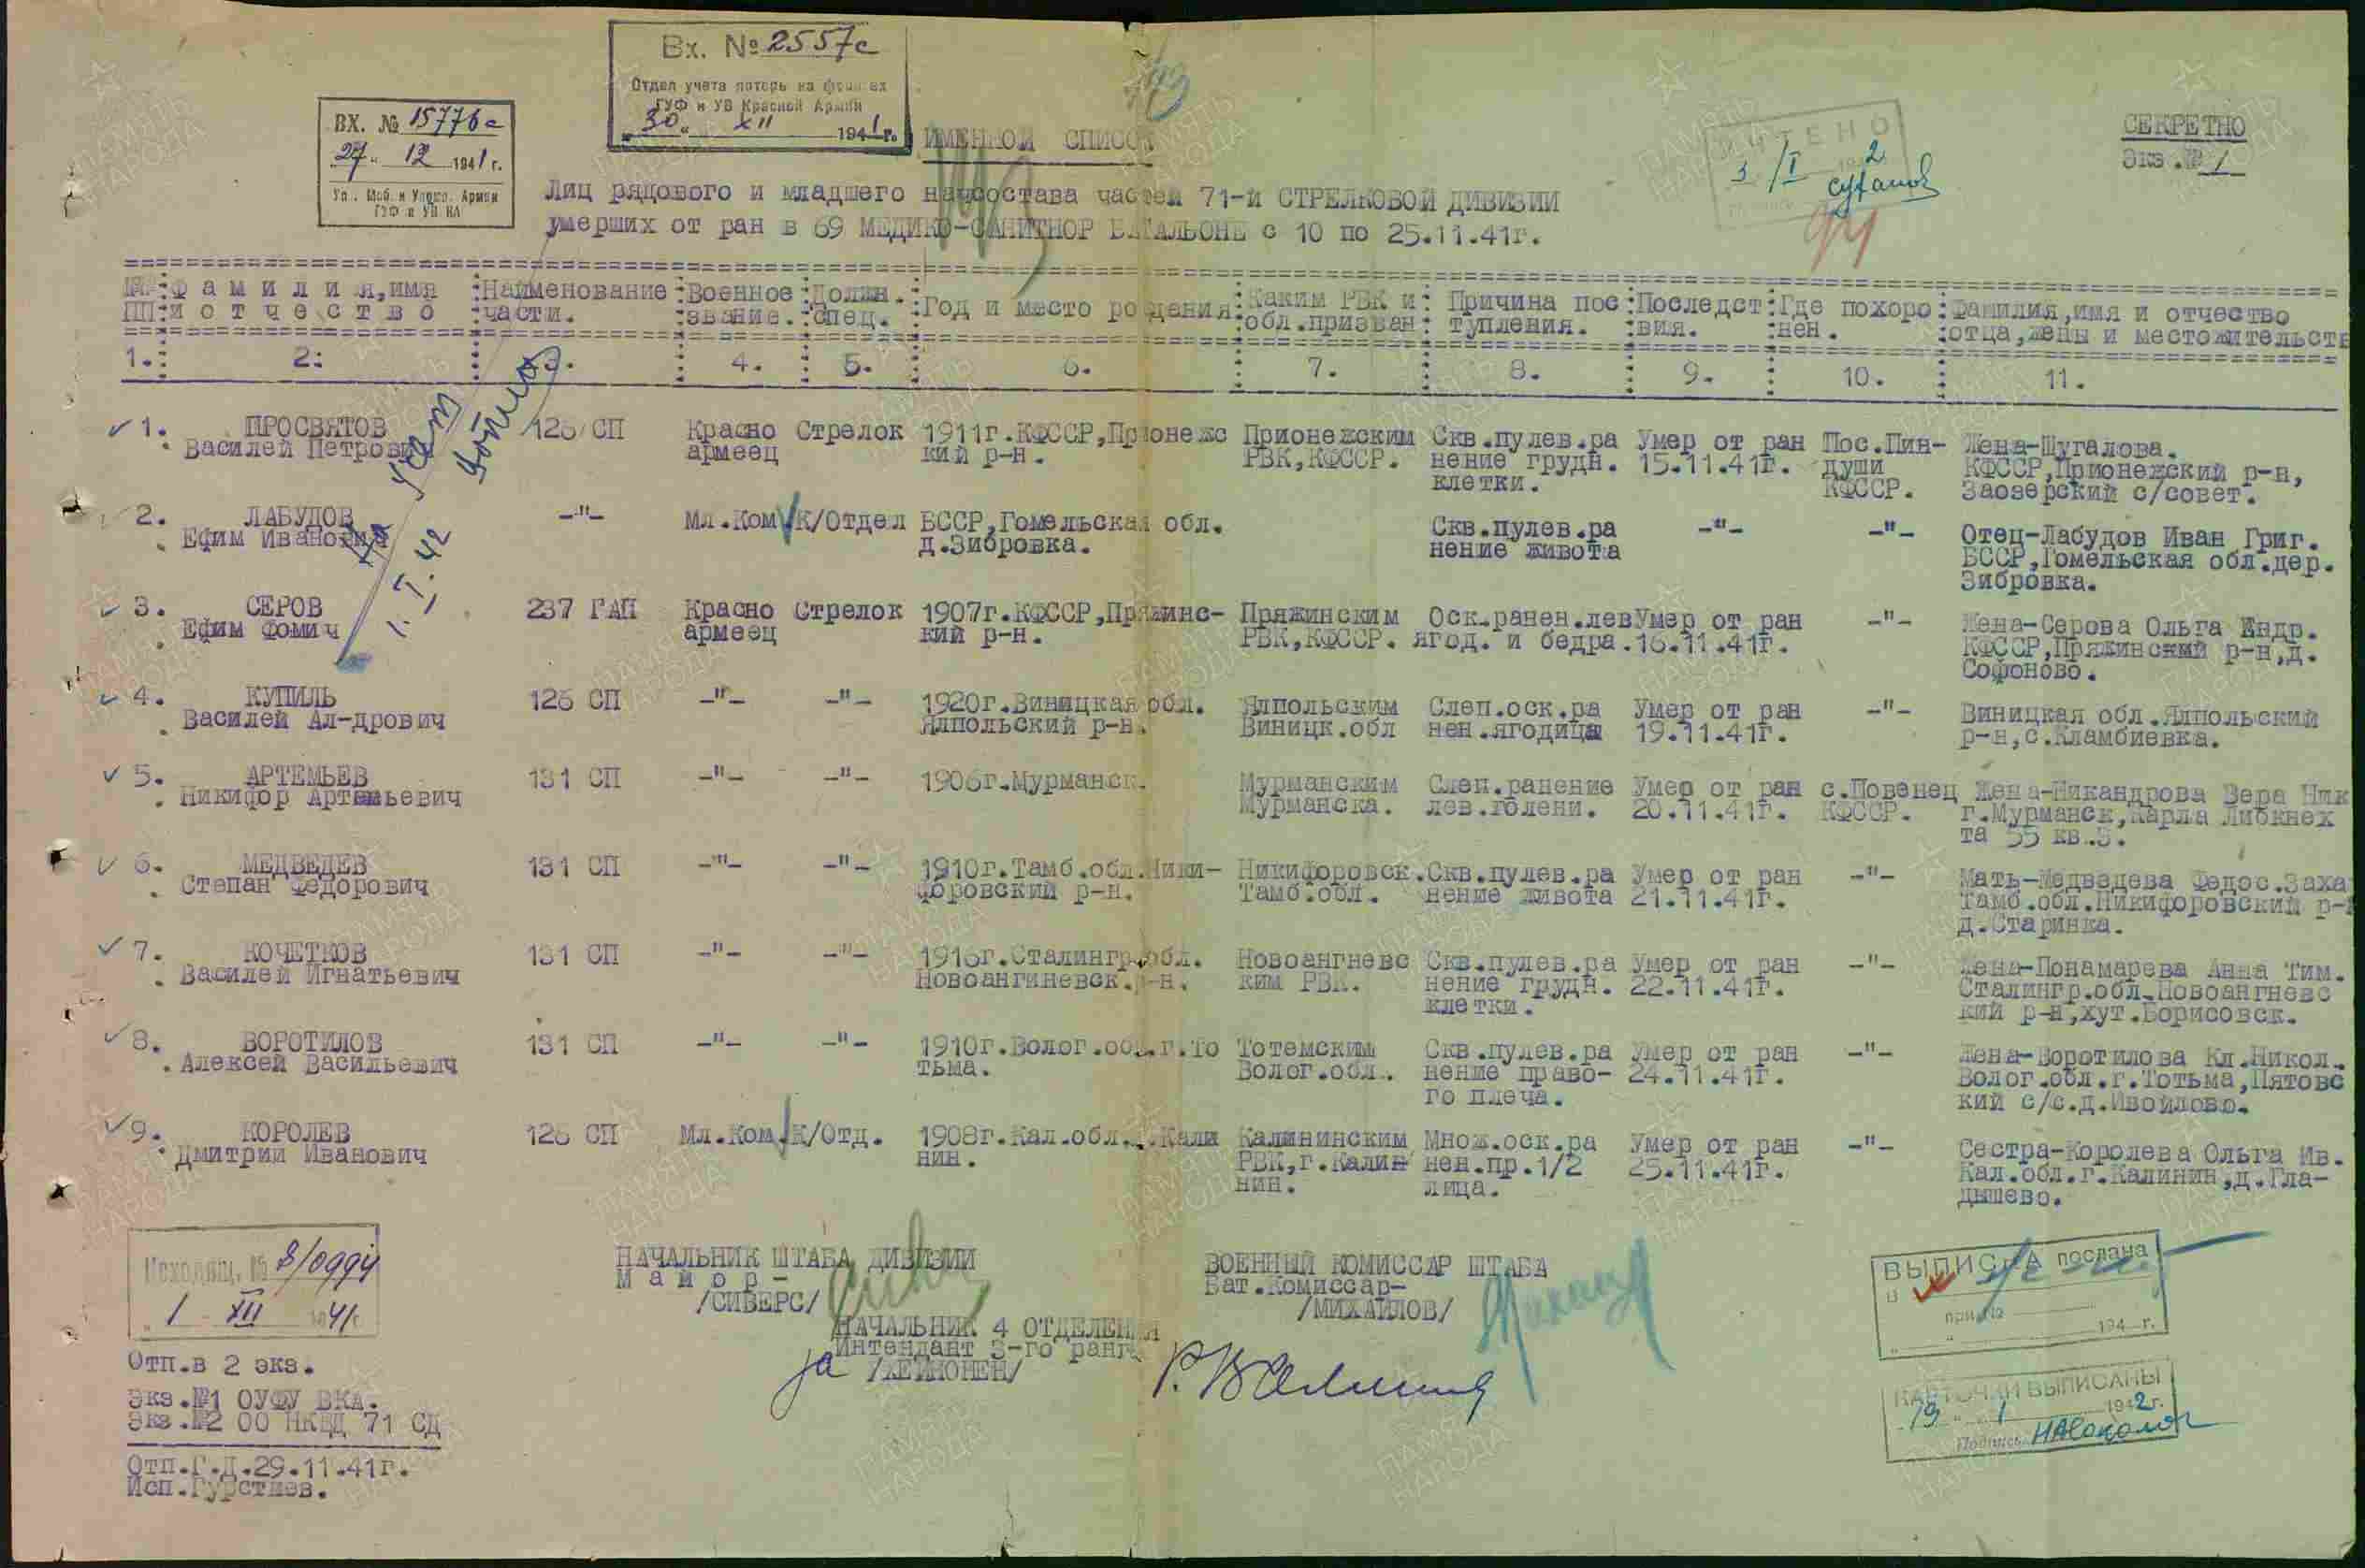 Вх. № 2557с
Отдел учета потерь на фронтах
ГУФ и УВ Красной Армии
"30" XII 1941г.
ВХ. № 15776с
"27" 12 1941г.
ИМЕННОЙ СПИСОК
СЕКРЕТНО
Экз.№ 1
УЧТЕНО
3/I 1942
Лиц рядового и младшего начсостава частей 71-й СТРЕЛКОВОЙ ДИВИЗИИ
умерших от ран в 69 МЕДИКО-САНИТНОР БАТАЛЬОНЕ с 10 по 25.11.41г.
94
№№:Ф а м и л и я,имя :Наименование :Военное :Должн. :Год и место рождения:Каким РВК и: Причина пос:Последст:Где похоро:Фамилия,имя и отчество
ПП:и о т ч е с т в о :части. :звание. :спец. :обл.призван: тупления. :вия. :нен. :отца,жены и местожительств
1.: 2: 3. : 4. : 5. : 6. : 7. : 8. : 9. : 10. : 11.
1. ПРОСВЯТОВ 126 СП Красно Стрелок 1911г.КФССР,Прионежс Прионежским Скв.пулев.ра Умер от ран Пос.Пин- Жена-Шугалова.
Василей Петрович армеец кий р-н. РВК,КФССР. нение грудн. 15.11.41г. души КФССР,Прионежский р-н,
клетки. КФССР. Заозерский с/совет.
2. ЛАБУДОВ -"- Мл.Ком. К/Отдел БССР,Гомельская обл. Скв.пулев.ра -"- -"- Отец-Лабудов Иван Григ.
Ефим Иванович д.Зибровка. нение живота БССР,Гомельская обл.дер.
Зибровка.
1.I.42
3. СЕРОВ 237 ГАП Красно Стрелок 1907г.КФССР,Пряжинс- Пряжинским Оск.ранен.лев Умер от ран -"- Жена-Серова Ольга Ендр.
Ефим Фомич армеец кий р-н. РВК,КФССР. ягод. и бедра. 16.11.41г. КФССР,Пряжинский р-н,д.
Софоново.
4. КУПИЛЬ 126 СП -"- -"- 1920г.Виницкая обл. Ялпольским Слеп.оск.ра Умер от ран -"- Виницкая обл.Ялпольский
Василей Ал-дрович Ялпольский р-н. Виницк.обл нен.ягодица 19.11.41г. р-н,с.Кламбиевка.
5. АРТЕМЬЕВ 131 СП -"- -"- 1906г.Мурманск. Мурманским Слеп.ранение Умер от ран с.Повенец Жена-Никандрова Вера Ник
Никифор Артемьевич Мурманска. лев.голени. 20.11.41г. КФССР. г.Мурманск,Карла Либкнех
та 55 кв.3.
6. МЕДВЕДЕВ 131 СП -"- -"- 1910г.Тамб.обл.Ники- Никифоровск. Скв.пулев.ра Умер от ран -"- Мать-Медведева Федос.Заха
Степан Федорович форовский р-н. Тамб.обл. нение живота 21.11.41г. Тамб.обл.Никифоровский р-н
д.Старинка.
7. КОЧЕТКОВ 131 СП -"- -"- 1916г.Сталингр.обл. Новоангневс Скв.пулев.ра Умер от ран -"- Жена-Понамарева Анна Тим.
Василей Игнатьевич Новоангиневск.р-н. ким РВК. нение грудн. 22.11.41г. Сталингр.обл.Новоангневс
клетки. кий р-н,хут.Борисовск.
8. ВОРОТИЛОВ 131 СП -"- -"- 1910г.Волог.обл.г.То Тотемским Скв.пулев.ра Умер от ран -"- Жена-Воротилова Кл.Никол.
Алексей Васильевич тьма. Волог.обл. нение право- 24.11.41г. Волог.обл.г.Тотьма,Пятовс
го плеча. кий с/с.д.Ивойлово.
9. КОРОЛЕВ 126 СП Мл.Ком. К/Отд. 1908г.Кал.обл.г.Кали Калининским Множ.оск.ра Умер от ран -"- Сестра-Королева Ольга Ив.
Дмитрий Иванович нин. РВК,г.Калин нен.пр.1/2 25.11.41г. Кал.обл.г.Калинин,д.Гла-
нин. лица. дышево.
Исходящ. №
1 XII 1941г
НАЧАЛЬНИК ШТАБА ДИВИЗИИ
М а й о р -
/СИВЕРС/
ВОЕННЫЙ КОМИССАР ШТАБА
Бат.Комиссар-
/МИХАЙЛОВ/
НАЧАЛЬНИК 4 ОТДЕЛЕНИЯ
Интендант 3-го ранга
за /ХЕЙНОНЕН/
ВЫПИСКА послана
в
при №
194 г.
КАРТОЧКИ ВЫПИСАНЫ
19 " 1 1942г.
Подпись
Отп.в 2 экз.
Экз.№1 ОУФУ ВКА.
Экз.№2 ОО НКВД 71 СД
Отп.Г.Д.29.11.41г.
Исп.Гурстиев.
ПАМЯТЬ
НАРОДА